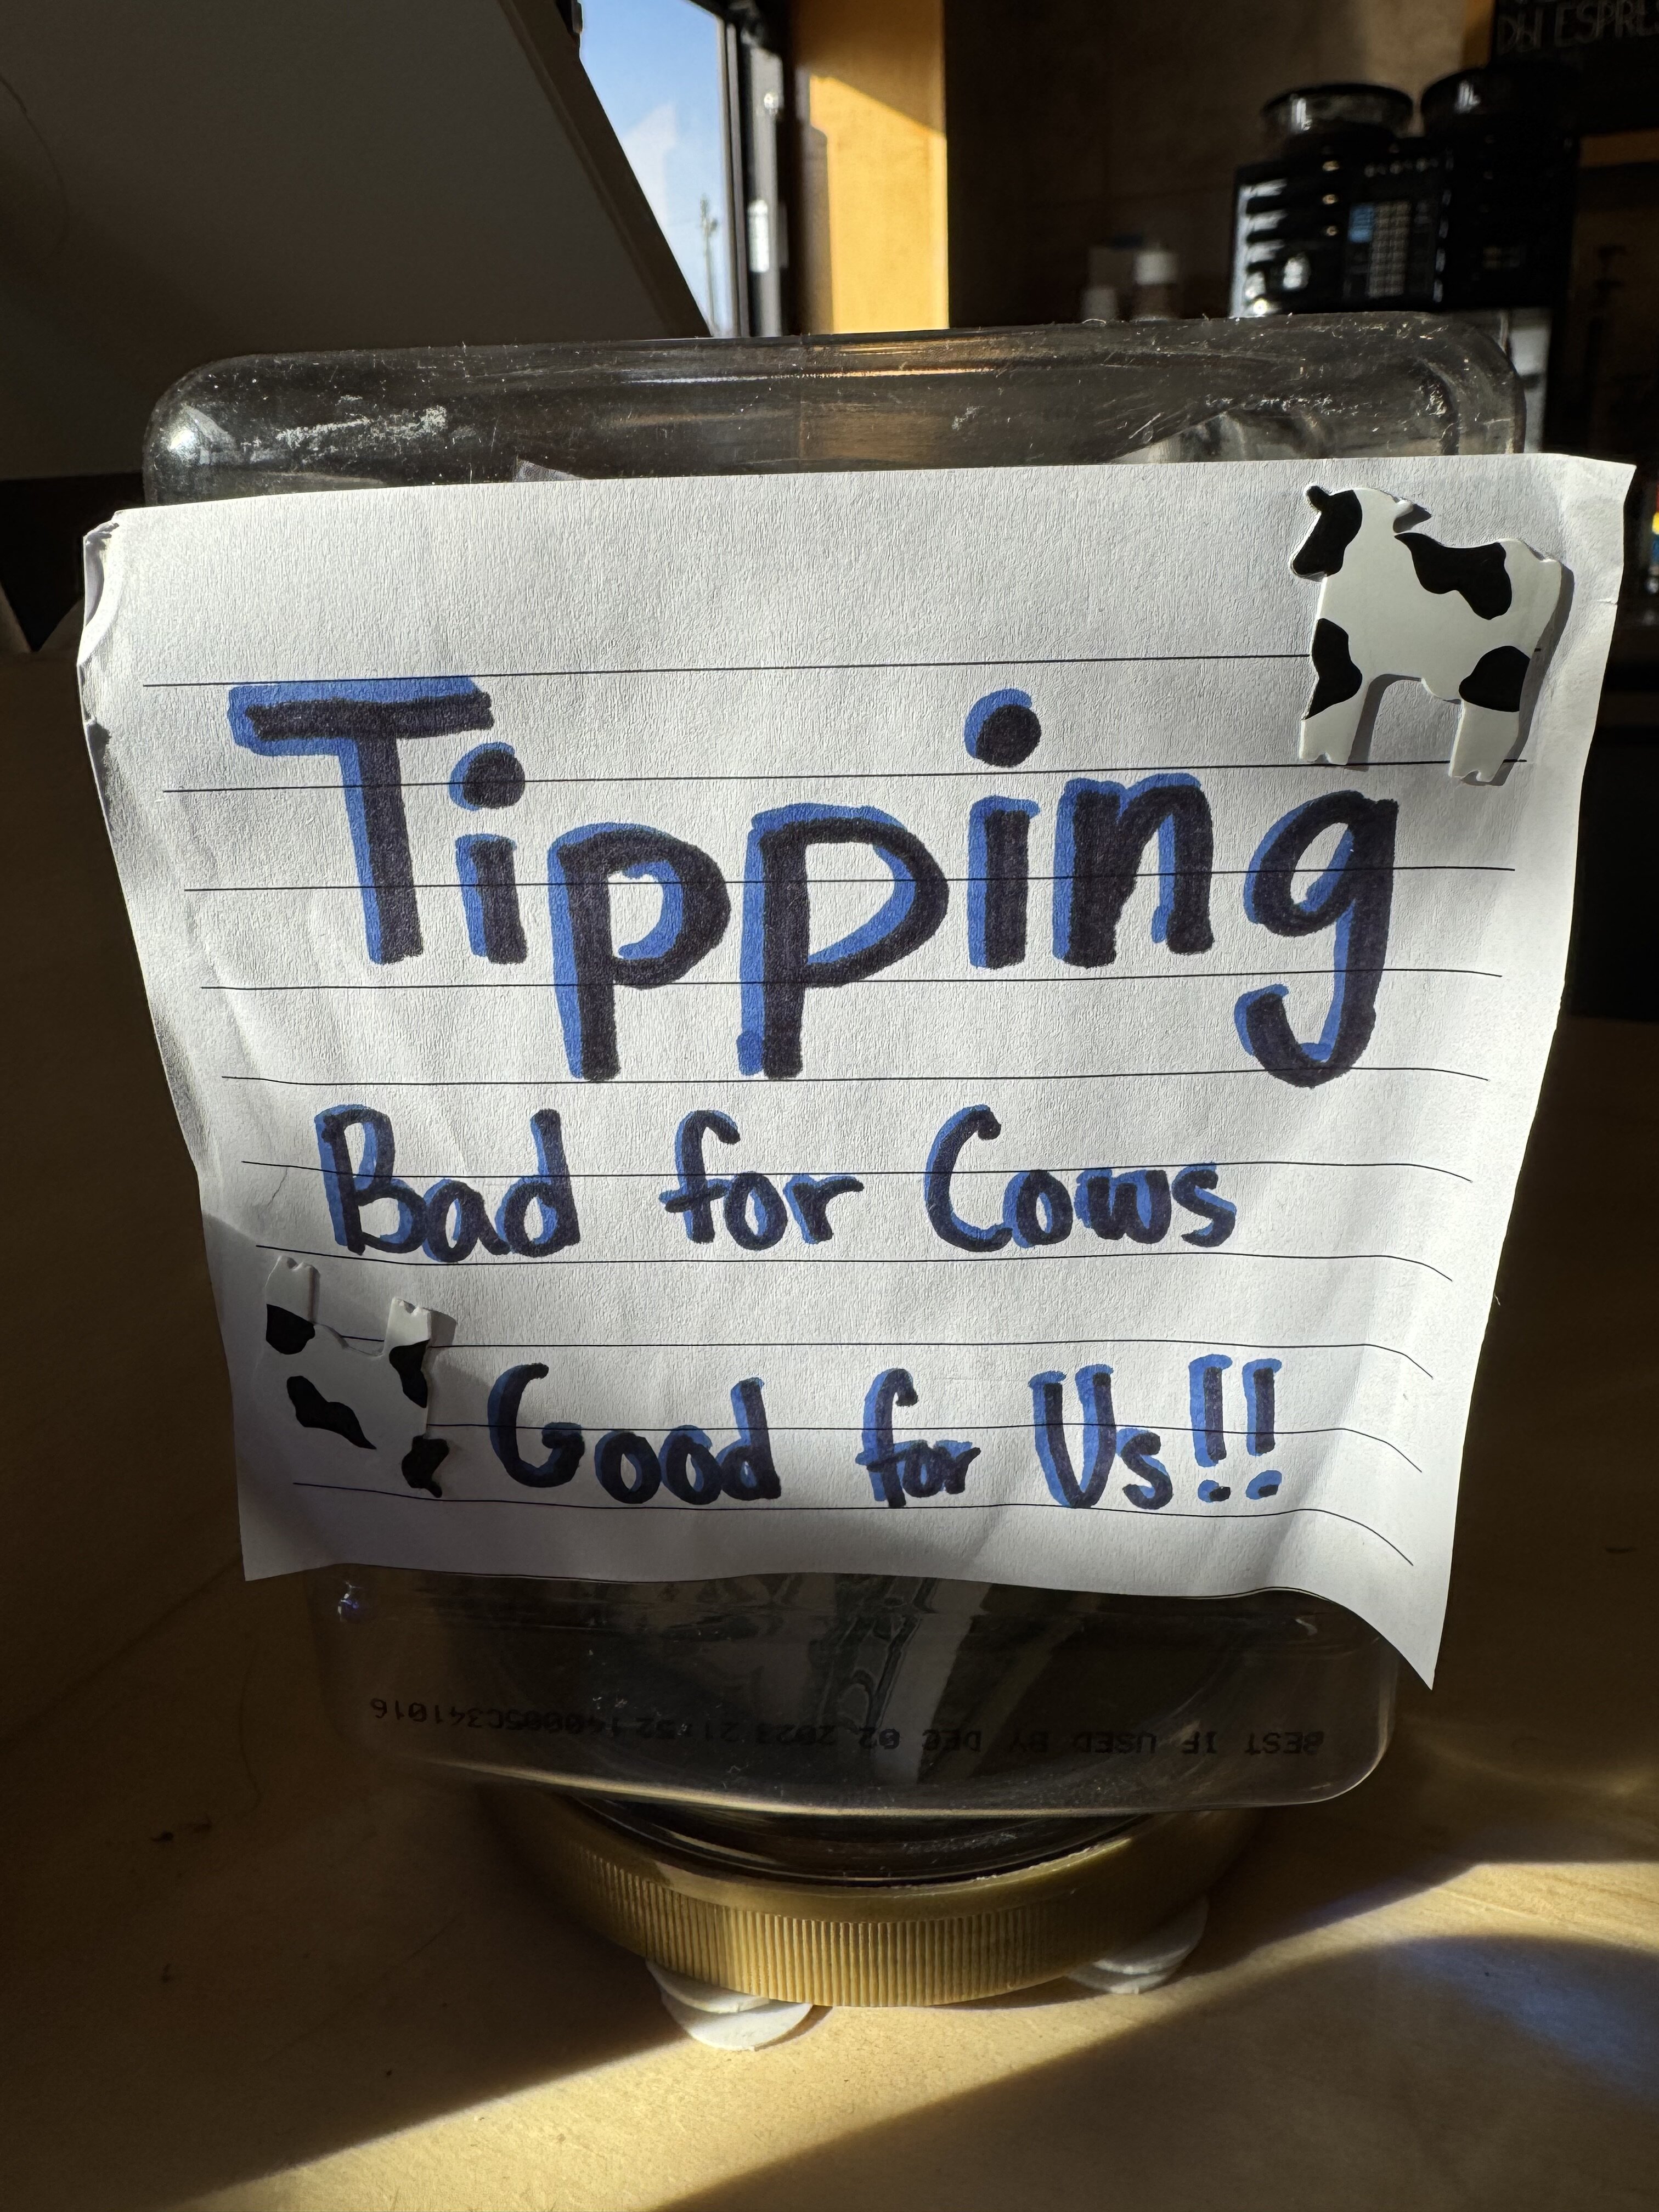 ESPRE
Tipping
Bad for Cows
Good for Us!!
BEST IF USED BY DEC 02 2023 21:52 140005C341016